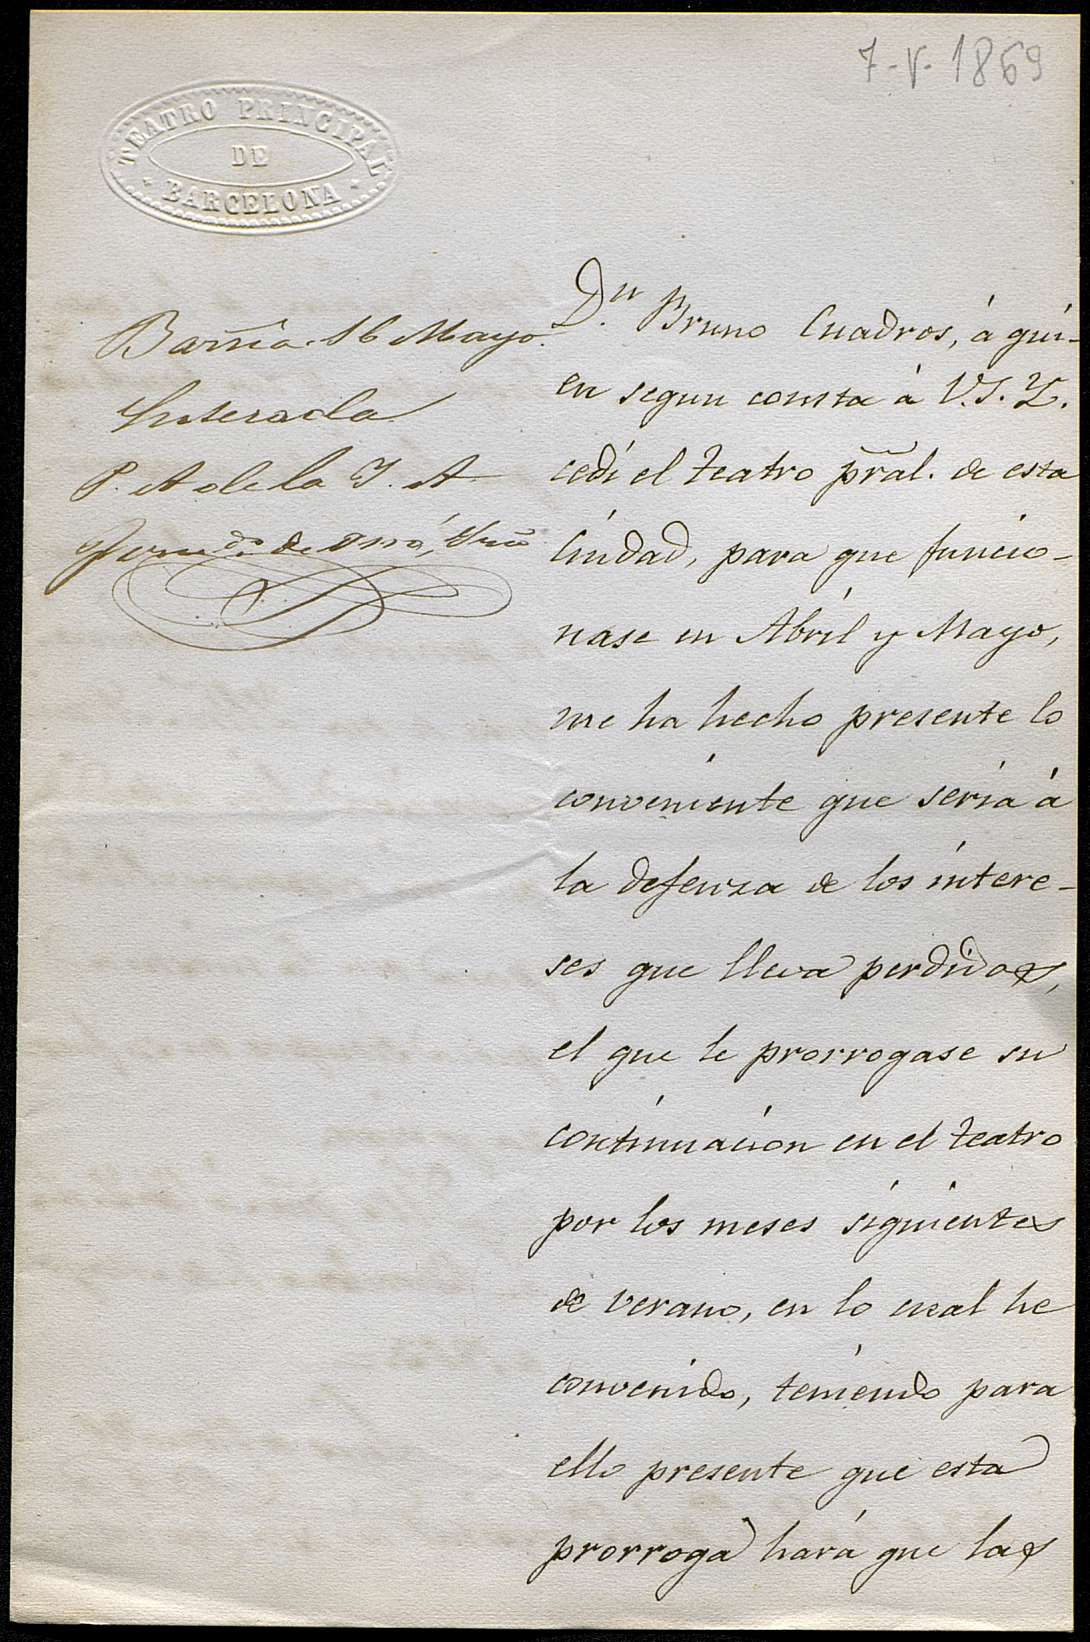 7-V-1869
TEATRO PRINCIPAL
DE
BARCELONA
Barna. 16 Mayo.
Enterada
P. A. de la J. A
Dn. Bruno Cuadros, á qui-
en segun consta á V.S. Y.
cedi el teatro pral. de esta
Ciudad, para que funcio-
nase en Abril y Mayo,
me ha hecho presente lo
conveniente que seria á
la defenza de los intere-
ses que lleva perdidos,
el que le prorrogase su
continuacion en el teatro
por los meses siguientes
de verano, en lo cual he
convenido, teniendo para
ello presente que esta
prorroga hará que las